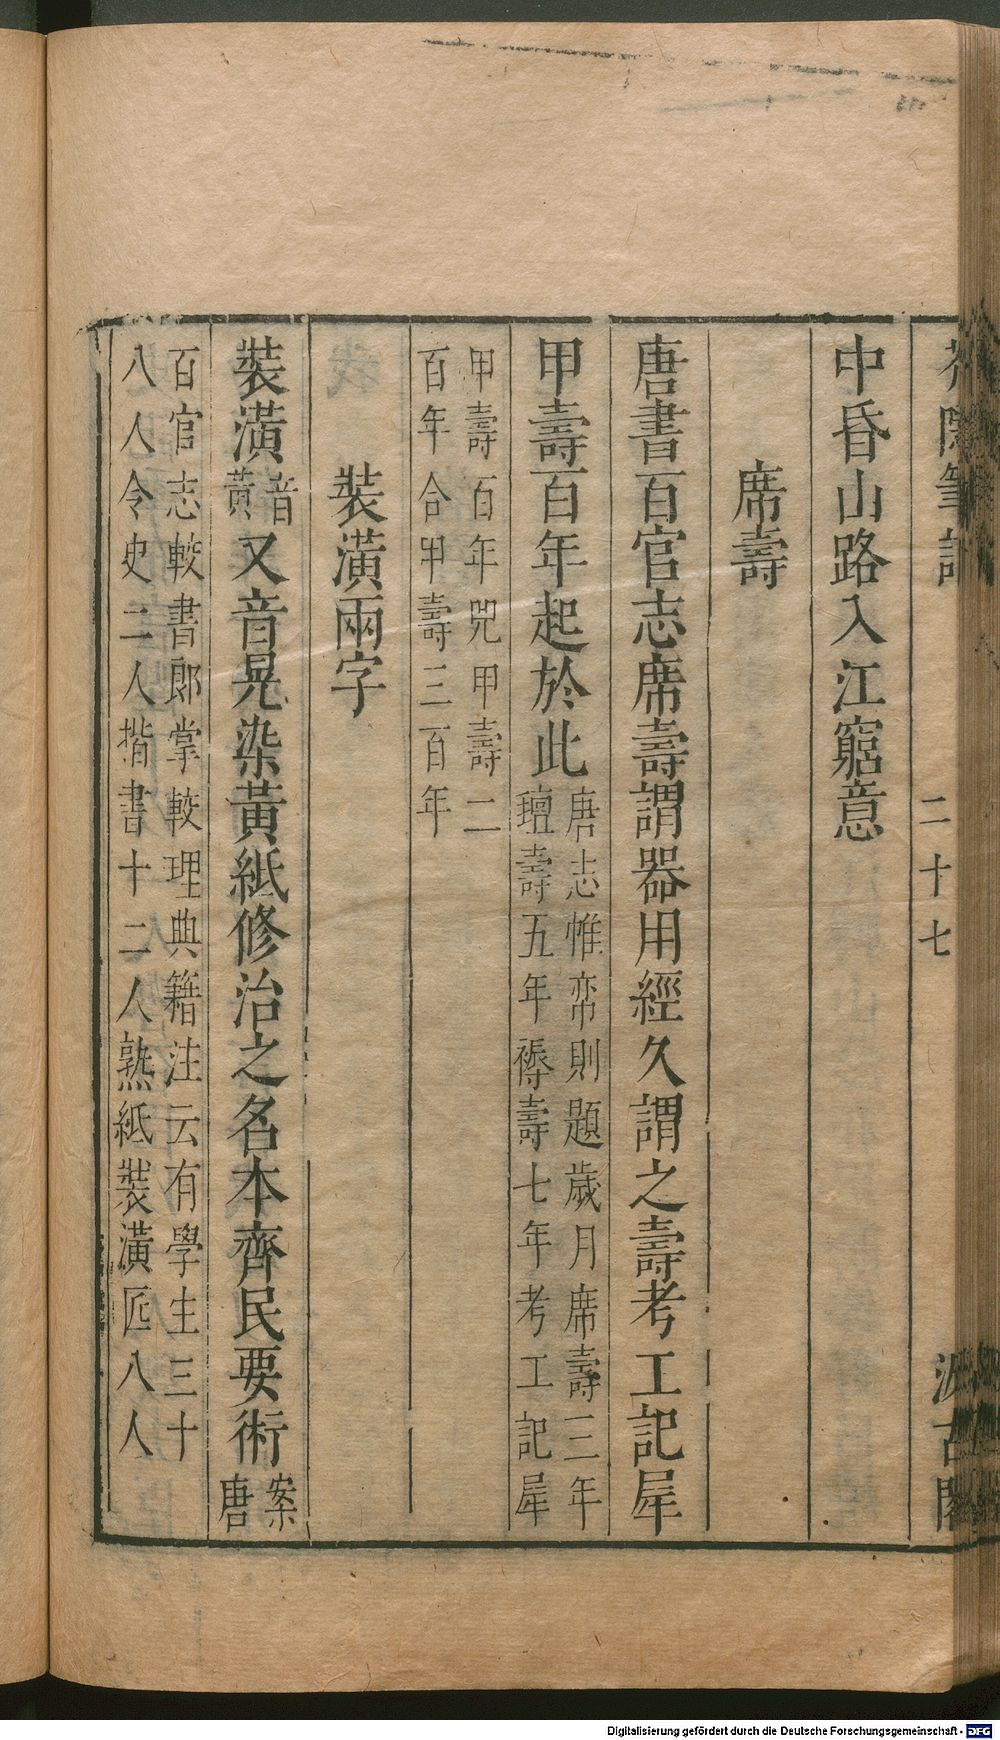 芥隱筆記
二十七
汲古閣
中昏山路入江窮意
席壽
唐書百官志席壽謂器用經久謂之壽考工記犀
甲壽百年起於此
唐志帷帟則題歲月席壽三年
氊壽五年褥壽七年考工記犀
甲壽百年兕甲壽二
百年合甲壽三百年
裝潢兩字
裝潢
音
黃
又音晃染黃紙修治之名本齊民要術
案
唐
百官志較書郎掌較理典籍注云有學生三十
八人令史二人揩書十二人熟紙裝潢匠八人
Digitalisierung gefördert durch die Deutsche Forschungsgemeinschaft - DFG